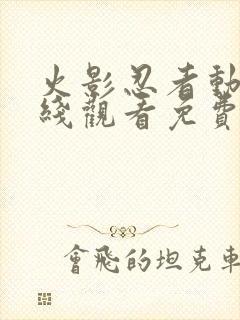 火影忍者動
綫觀看免費
會飛的坦克車